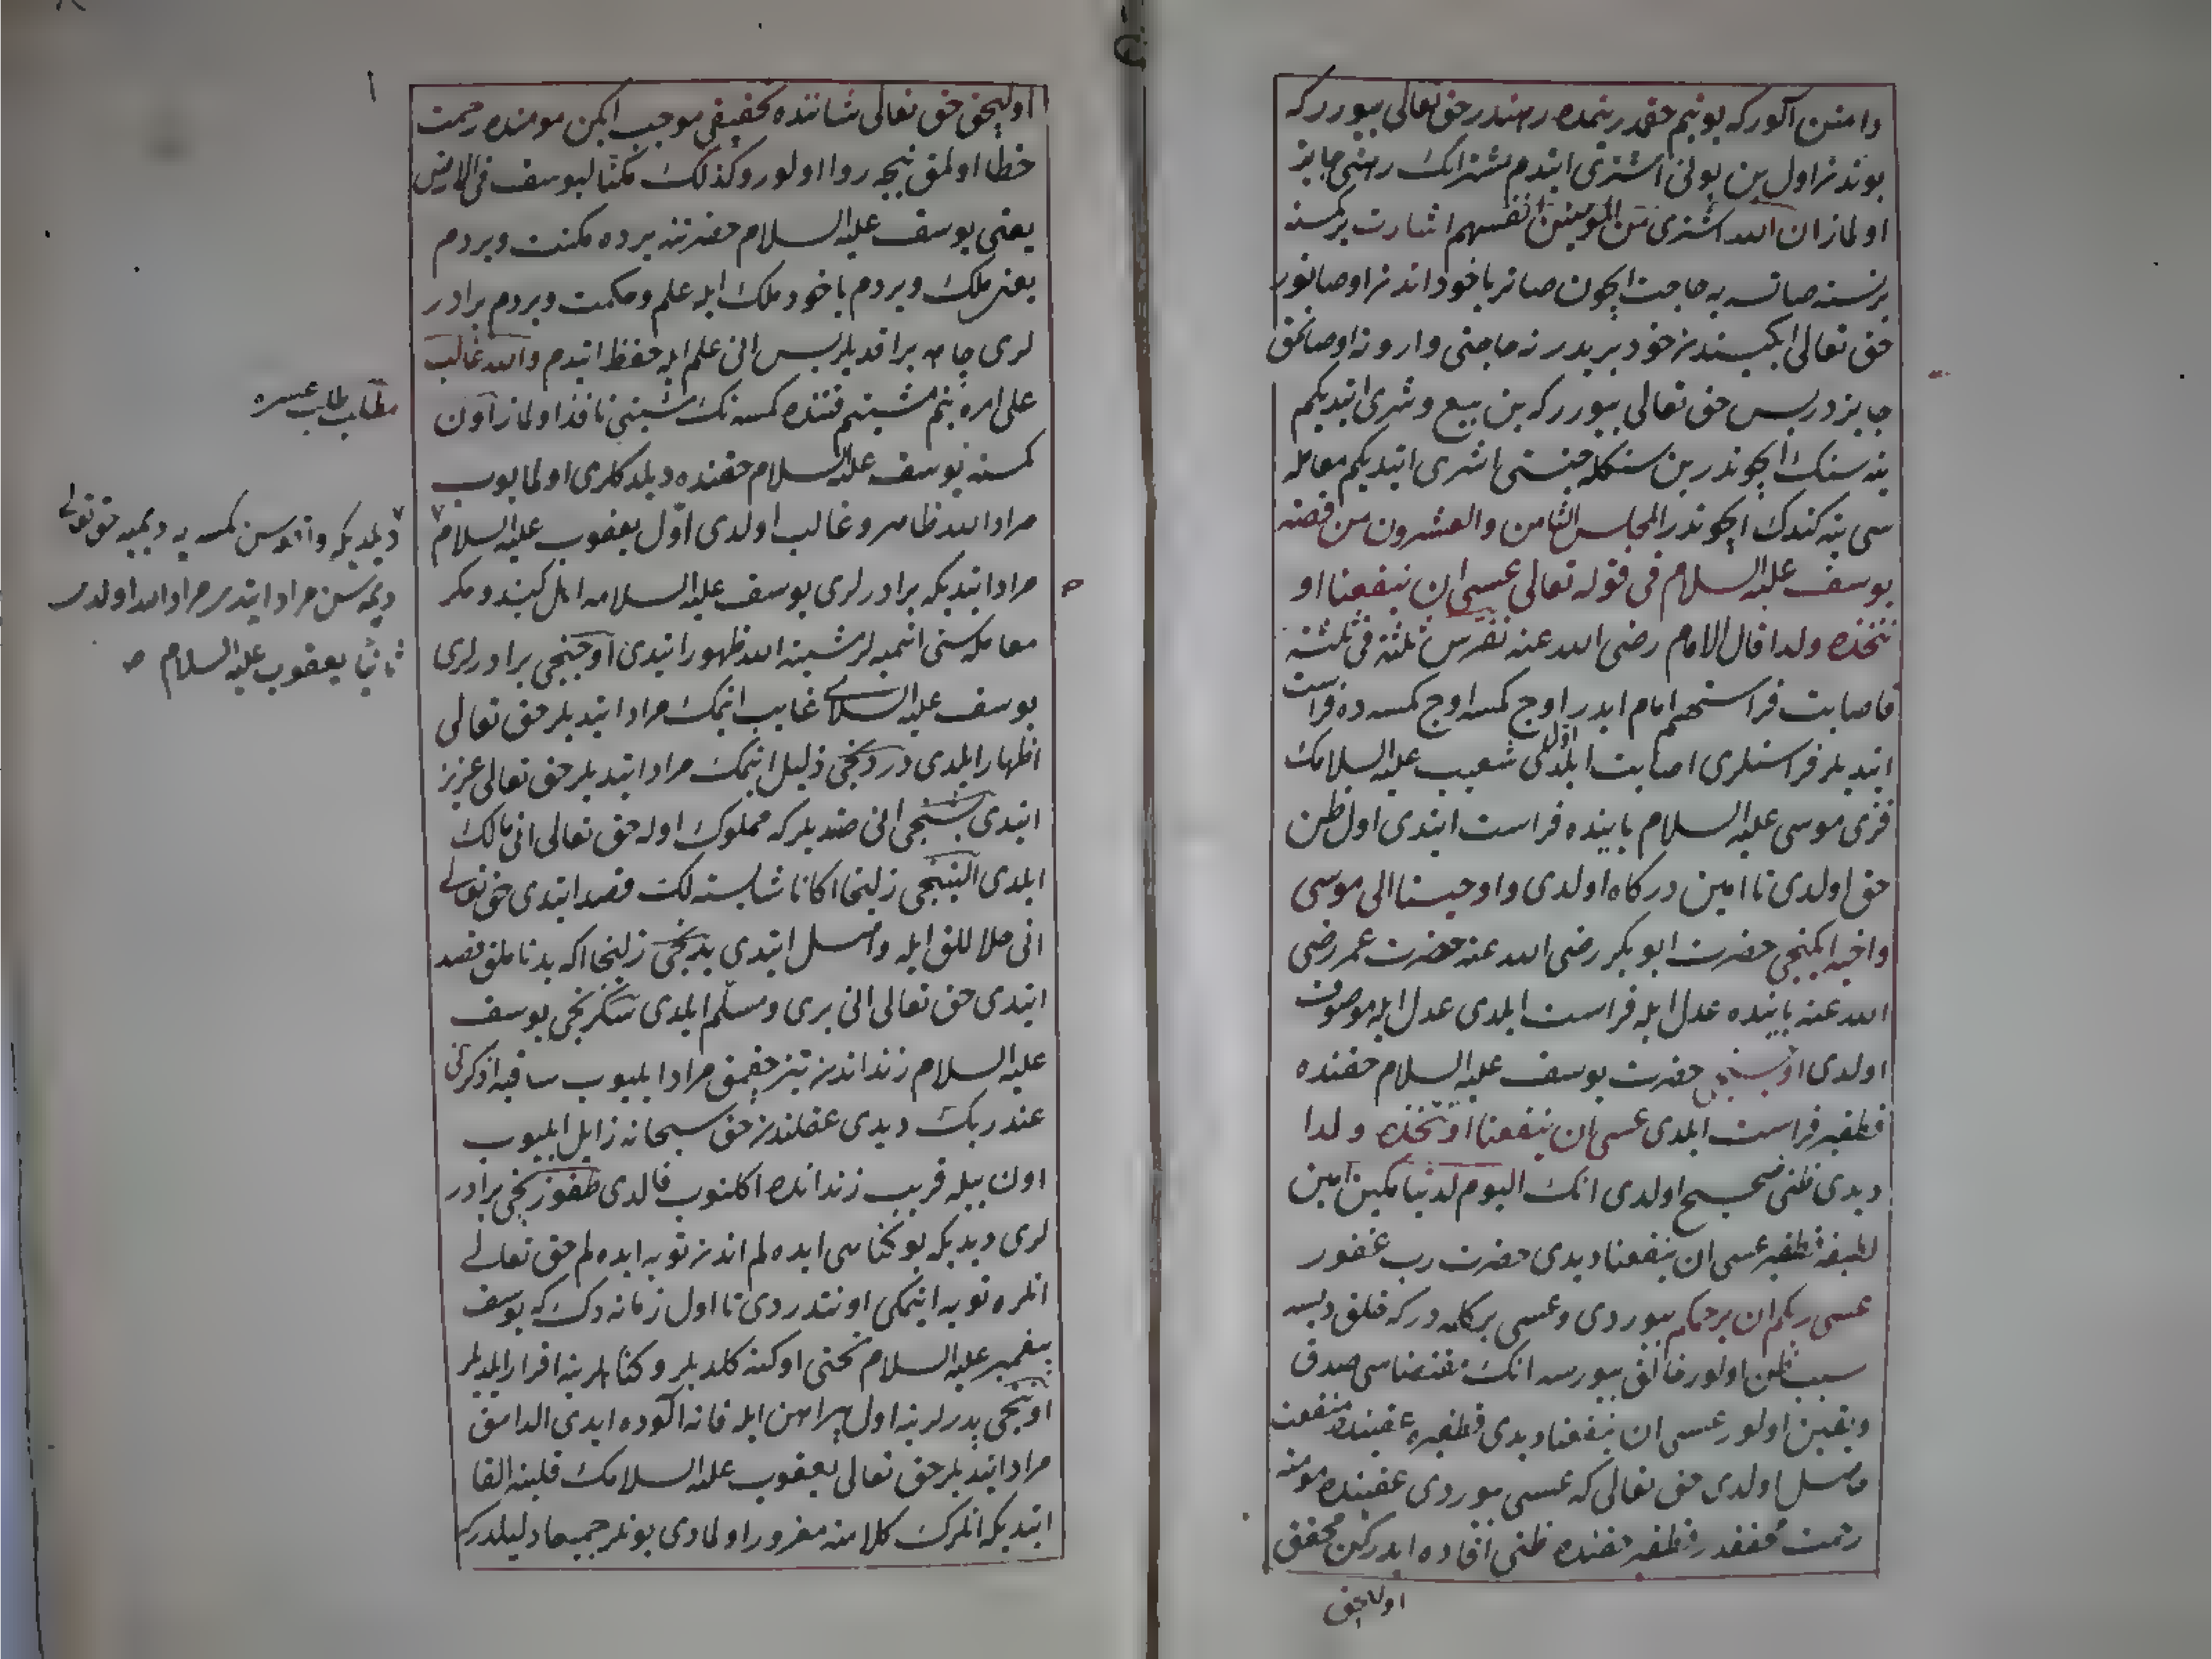 دامنن آلورکه بو بنم حقمدر بنمده رهندر حق تعالی بیوررکه
بوندنز اول بن بونی اشتری ایتدم مشترانک رهنی جایز
اولماز ان الله اشتری من المومنین انفسهم اشارت برکمسنه
برنسنه صاتسه یه حاجت ایچون صاتر یاخود اندنز اوصانور
حق تعالی ایکیسندنز خود بریدر نه حاجتی وار و نه اوصانمق
جایزدر پس حق تعالی بیوررکه بن بیع و شری ایتدیکم
ینه سنک ایچوندر بن سنکله جنتی اشری ایتدیکم معامله
سی ینه کندک ایچوندر المجلس الثامن والعشرون من قصة
یوسف علیه السلام فی قوله تعالی عسی ان ینفعنا او
نتخذه ولدا قال الامام رضی الله عنه تفرس ثلثة فی ثلثة
فاصابت فراستهم امام ایدر اوچ کمسه اوچ کمسه ده فراست
ایتدیلر فراستلری اصابت ایلدی اولکی شعیب علیه السلامک
قزی موسی علیه السلام بابنده فراست ایتدی اول ظن
حق اولدی تا امین درکاه اولدی واوحینا الی موسی
واخیه ایکنجی حضرت ابوبکر رضی الله عنه حضرت عمر رضی
الله عنه بابنده عدل ایله فراست ایلدی عدل ایله موصوف
اولدی اوچنجی حضرت یوسف علیه السلام حقنده
قطفیر فراست ایلدی عسی ان ینفعنا او نتخذه ولدا
دیدی ظنی صحیح اولدی انک الیوم لدینا مکین امین
لطیفه قطفیر عسی ان ینفعنا دیدی حضرت رب غفور
عسی ربکم ان یرحمکم بیوردی و عسی بر کلمه درکه خلق دیسه
سبب ظن اولور خالق بیورسه انک مقتضاسی صدق
ویقین اولور عسی ان ینفعنا دیدی قطفیره عقبنده منفعت
حاصل اولدی حق تعالی که عسی بیوردی عقبنده مومنه
رحمت محققدر قطفیر حقنده ظنی افاده ایدرکن محقق
اولیجق
اولیجق حق تعالی شاننده تحقیقی موجب ایکن مومنده رحمت
خطا اولمق نیجه روا اولور وکذلک مکنا لیوسف فی الارض
یعنی یوسف علیه السلام حضرتنه یرده مکنت ویردم
یعنی ملک ویردم یاخود ملک ایله علم و حکمت ویردم برادر
لری چاهه براقدیلر پس انی علم ایله حفظ ایتدم والله غالب
علی امره بنم مشیتم قتنده کمسه نک مشیتی نافذ اولماز آون
کمسنه یوسف علیه السلام حقنده دیلدکلری اولمایوب
مراد الله ظاهر و غالب اولدی اول یعقوب علیه السلام
مراد ایتدیکه برادرلری یوسف علیه السلامه ایل کید و مکر
معامله سنی ایتمیه لر مشیة الله ظهور ایتدی اوچنجی برادرلری
یوسف علیه السلامی غایب ایتمک مراد ایتدیلر حق تعالی
اظهار ایلدی دردنجی ذلیل ایتمک مراد ایتدیلر حق تعالی عزیز
ایتدی بشنجی انی صتدیلر که مملوک اوله حق تعالی انی مالک
ایلدی التنجی زلیخا اکا ناشایسته لک قصد ایتدی حق تعالی
انی حلاللق ایله واصل ایتدی یدنجی زلیخا اکه بدناملق قصد
ایتدی حق تعالی انی بری و مسلم ایلدی سکزنجی یوسف
علیه السلام زنداندنز تیز چقمق مراد ایلیوب ساقیه اذکرنی
عند ربک دیدی عقلندنز حق سبحانه زایل ایلیوب
اون ییله قریب زندانده اکلنوب قالدی طقوزنجی برادر
لری دیدیکه بو کناهی ایده لم اندنز توبه ایده لم حق تعالی
انلره توبه ایتمکی اونتدردی تا اول زمانه دک که یوسف
پیغمبر علیه السلام تختی اوکنه کلدیلر و کناهلرینه اقرار ایلدیلر
اوننجی پدرلرینه اول پیراهن ایله قانه آلوده ایدی الدامق
مراد ایتدیلر حق تعالی یعقوب علیه السلامک قلبنه القا
ایتدیکه انلرک کلامنه مغرور اولمادی بونلر جمیعا دلیلدرکه
مطلب طلب عسره
دیلدیکه واقعه سن کمسه یه دیمیه حق تعالی
دیمه سن مراد ایتدی مراد الله اولدی
ثانیا یعقوب علیه السلام صح